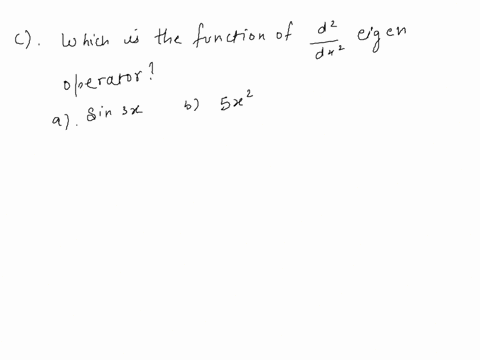 c). Which is the function of d²/dx² eigen
operator?
a). Sin 3x b) 5x²